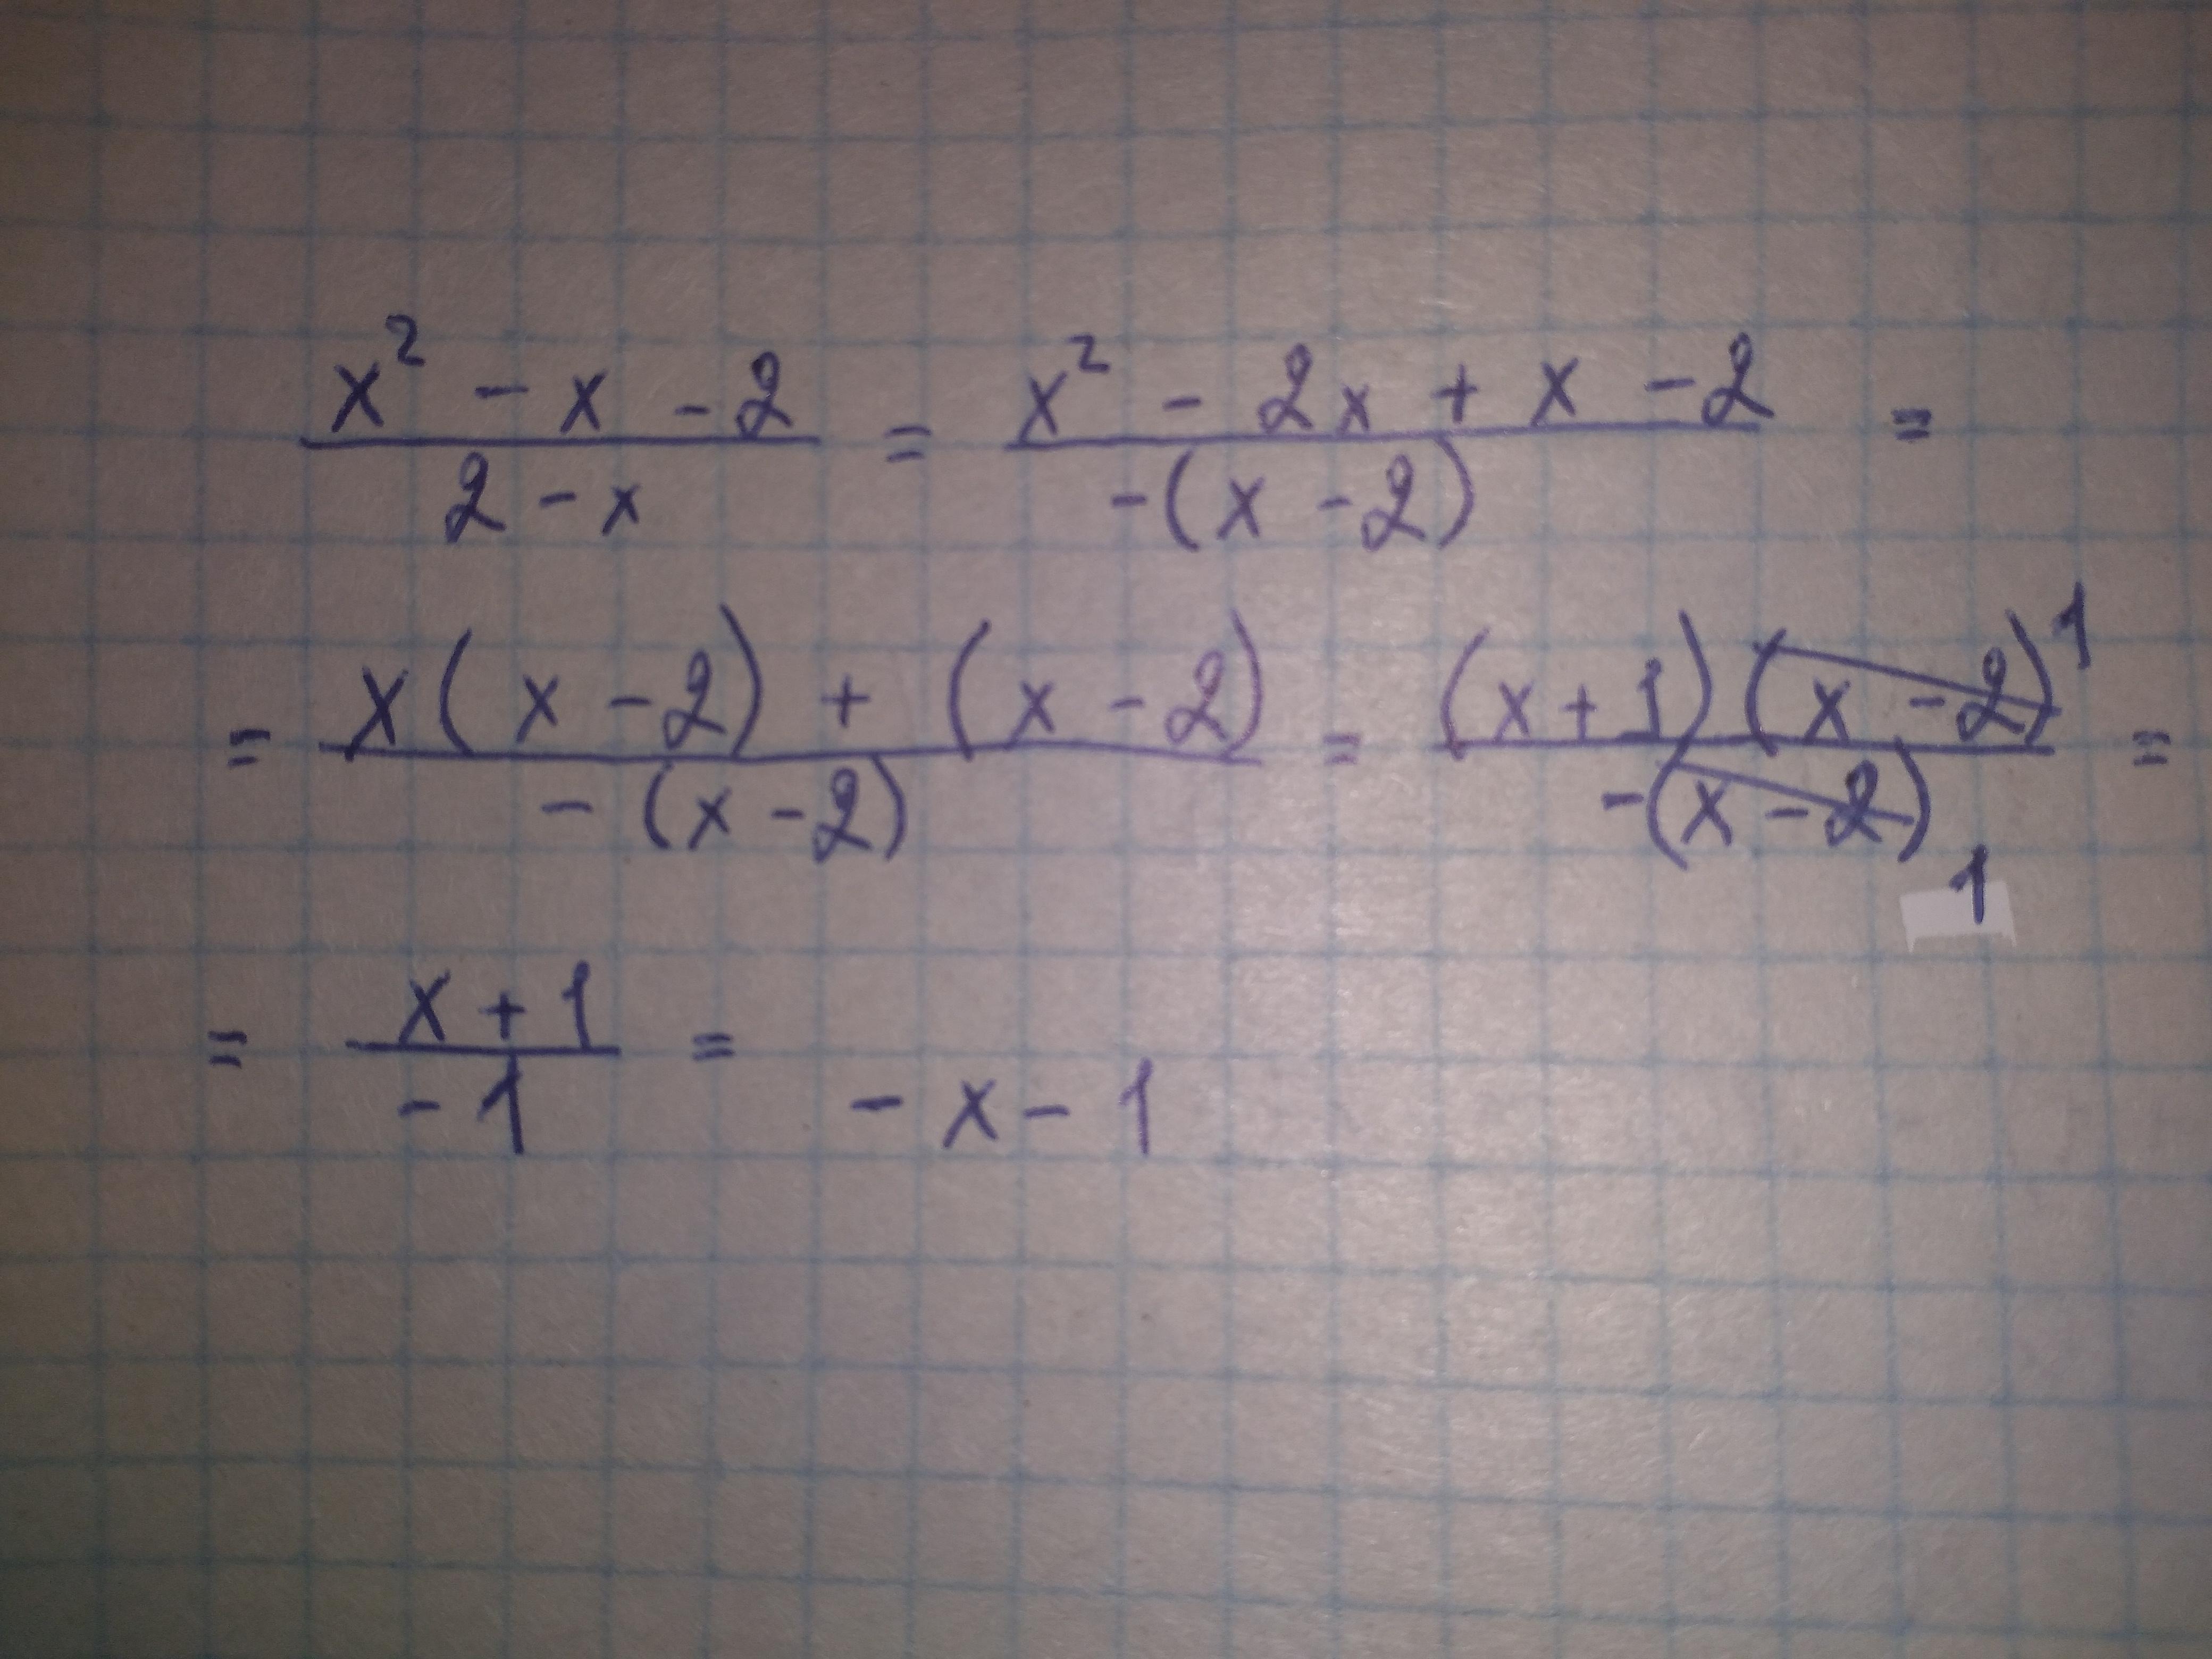 (x² - x - 2)/(2 - x) = (x² - 2x + x - 2)/(-(x - 2)) =
= (x(x - 2) + (x - 2))/(-(x - 2)) = ((x + 1)(x - 2)¹)/(-(x - 2)₁) =
= (x + 1)/(-1) = -x - 1